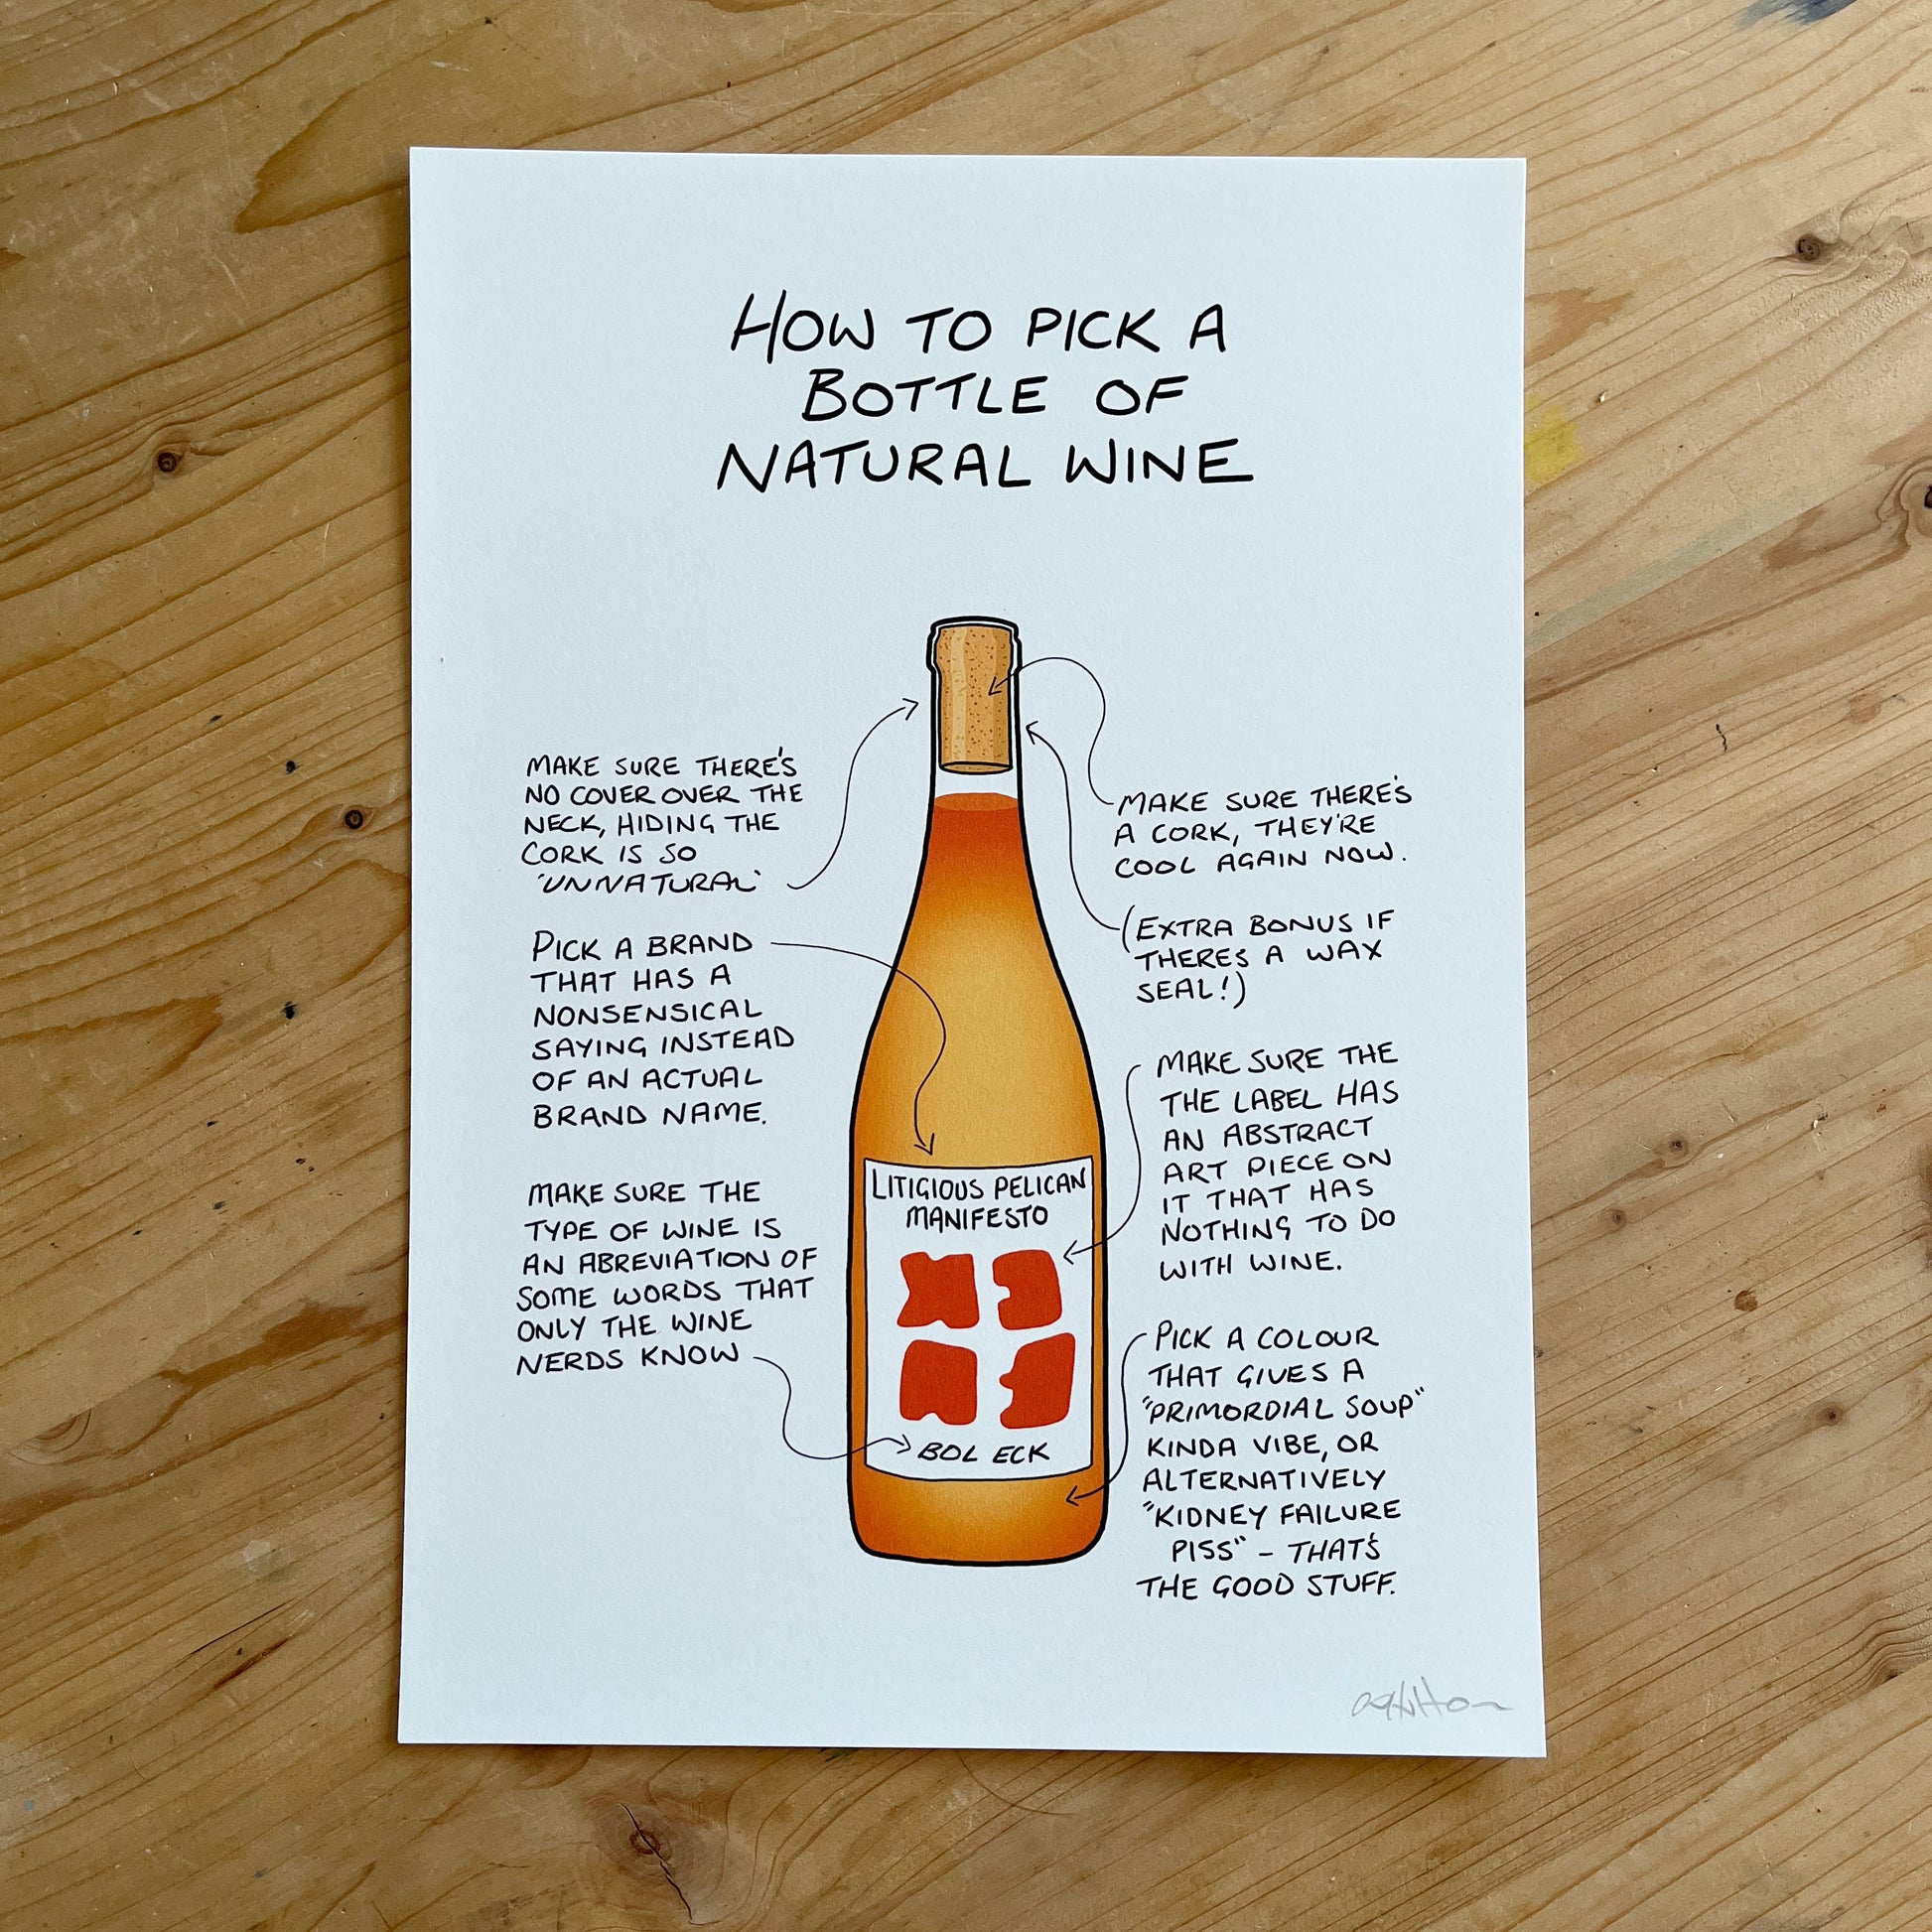 HOW TO PICK A
BOTTLE OF
NATURAL WINE
MAKE SURE THERE'S
NO COVER OVER THE
NECK, HIDING THE
CORK IS SO
'UNNATURAL'
PICK A BRAND
THAT HAS A
NONSENSICAL
SAYING INSTEAD
OF AN ACTUAL
BRAND NAME.
MAKE SURE THE
TYPE OF WINE IS
AN ABREVIATION OF
SOME WORDS THAT
ONLY THE WINE
NERDS KNOW
MAKE SURE THERE'S
A CORK, THEY'RE
COOL AGAIN NOW.
(EXTRA BONUS IF
THERES A WAX
SEAL!)
MAKE SURE THE
THE LABEL HAS
AN ABSTRACT
ART PIECE ON
IT THAT HAS
NOTHING TO DO
WITH WINE.
PICK A COLOUR
THAT GIVES A
"PRIMORDIAL SOUP"
KINDA VIBE, OR
ALTERNATIVELY
"KIDNEY FAILURE
PISS" - THAT'S
THE GOOD STUFF.
LITIGIOUS PELICAN
MANIFESTO
BOL ECK